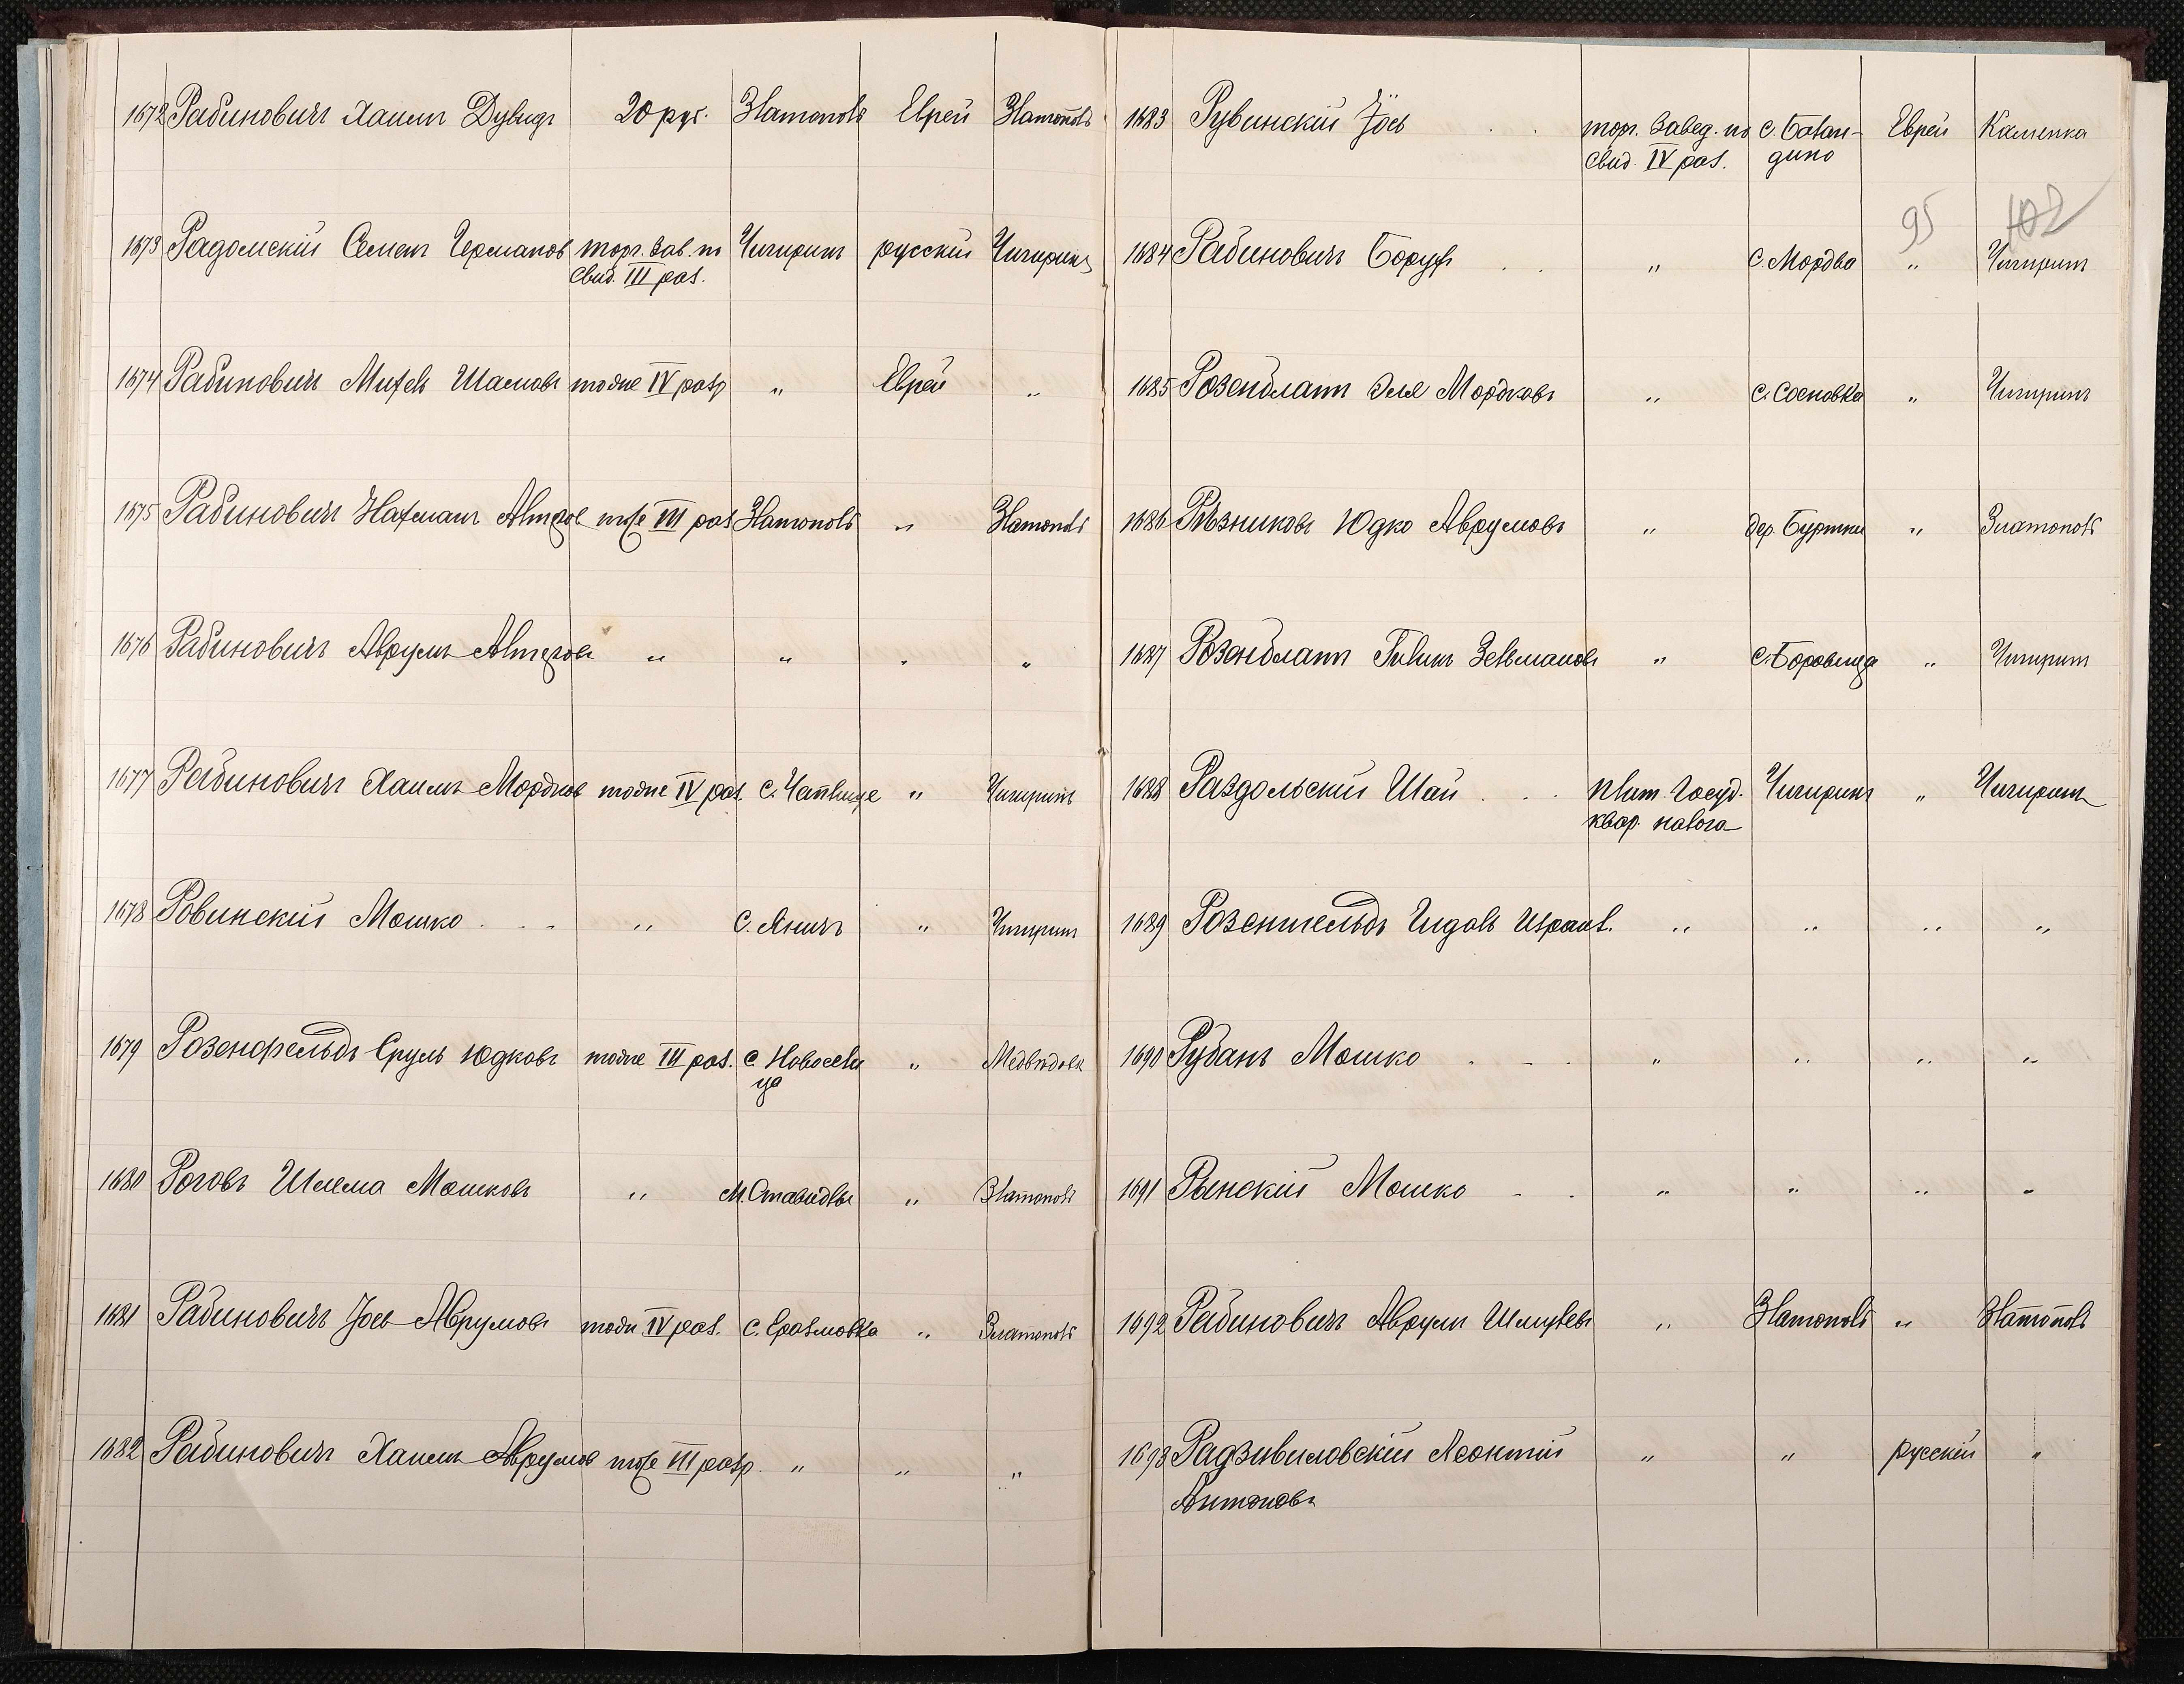 1672 Рабиновичъ Хаимъ Дувидъ 20 руб. Златополь Еврей Златополь
1673 Радомскій Семенъ Германовъ торг. зав. по Чигиринъ русскій Чигиринъ
свид. III раз.
1674 Рабиновичъ Михель Шамовъ тоже IV разр " Еврей "
1675 Рабиновичъ Нахманъ Алтеров тоже III раз Златополь " Златополь
1676 Рабиновичъ Аврумъ Алтеровъ " " " "
1677 Рабиновичъ Хаимъ Мордков тоже IV раз. С. Чаплище " Чигиринъ
1678 Ровинскій Мошко " С. Яничъ " Чигиринъ
1679 Розенфельдъ Сруль Юдковъ тоже III раз. С. Новосели " Медвѣдовк
ца
1680 Роговъ Шлема Мошковъ " М. Ставидлы " Златополь
1681 Рабиновичъ Іось Аврумовъ тоже IV раз. С. Еразмовка " Златополь
1682 Рабиновичъ Хаимъ Аврумов тоже III разр. " " "
1683 Рувинскій Іось торг. завед. по С. Балан- Еврей Каменка
свид. IV раз. дино
95 102
1684 Рабиновичъ Борухъ " С. Мордва " Чигиринъ
1685 Розенблатъ Эля Мордковъ " С. Сосновка " Чигиринъ
1686 Рѣзниковъ Юдко Аврумовъ " дер. Буртки " Златополь
1687 Розенблатъ Гилик Зельмановъ " С. Боровица " Чигиринъ
1688 Раздольскій Шай плат. Госуд. Чигиринъ " Чигиринъ
квар. налога
1689 Розенгельдъ Гидаль Израил. " " " "
1690 Рубанъ Мошко " " " "
1691 Рынскій Мошко " " " "
1692 Рабиновичъ Аврумъ Шмулевъ " Златополь " Златополь
1693 Радзивиловскій Леонтій " " русскій "
Антоновъ